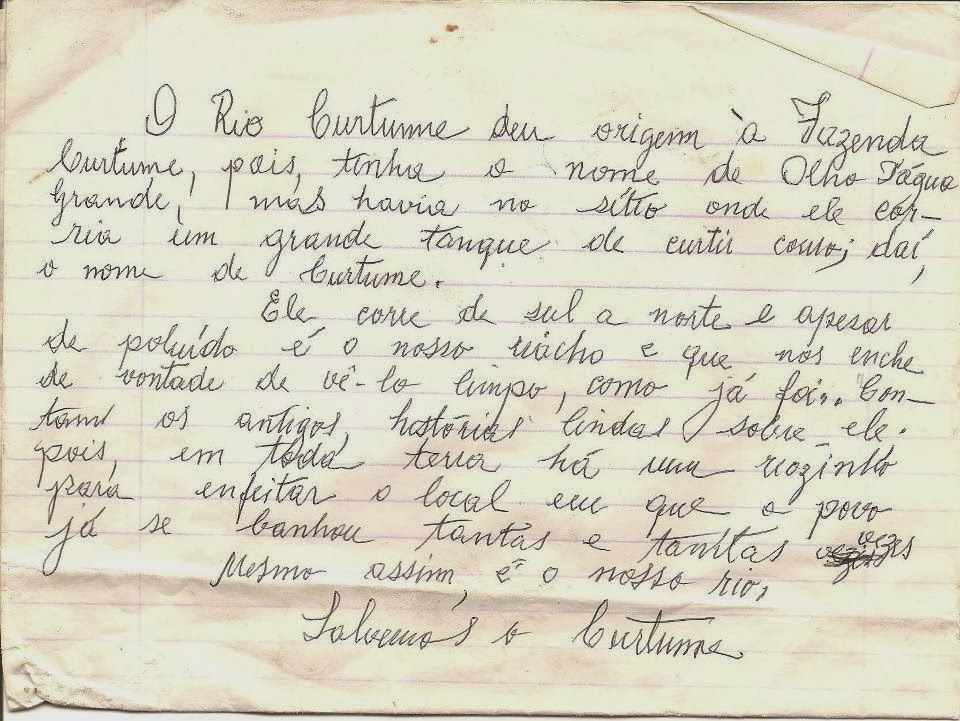 O Rio Curtume deu origem à Fazenda
Curtume, pois, tinha o nome de Olho Dágua
Grande, mas havia no sítio onde ele cor-
ria um grande tanque de curtir couro; daí,
o nome de Curtume.
Ele corre de sul a norte e apesar
de poluído é o nosso riacho e que nos enche
de vontade de vê-lo limpo, como já foi... Con-
tam os antigos, histórias lindas sobre ele.
pois, em toda terra há um riozinho
para enfeitar o local em que o povo
já se banhou tantas e tantas vezes
Mesmo assim, é o nosso rio.
Salvemos o Curtume